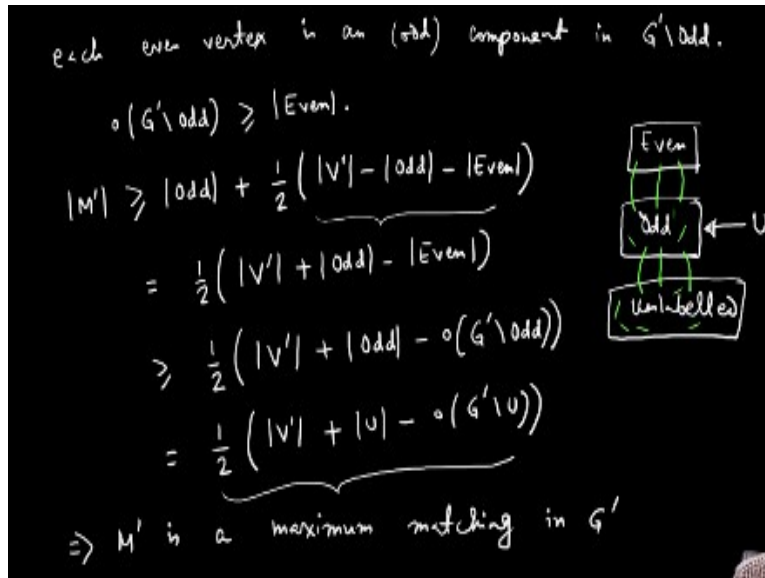 each even vertex is an (odd) component in G'\Odd.
o(G'\Odd) ⩾ |Even|.
|M'| ⩾ |Odd| + 1/2 (|V'| - |Odd| - |Even|)
= 1/2 (|V'| + |Odd| - |Even|)
⩾ 1/2 (|V'| + |Odd| - o(G'\Odd))
= 1/2 (|V'| + |U| - o(G'\U))
⇒ M' is a maximum matching in G'
Even
Odd ← U
Unlabelled